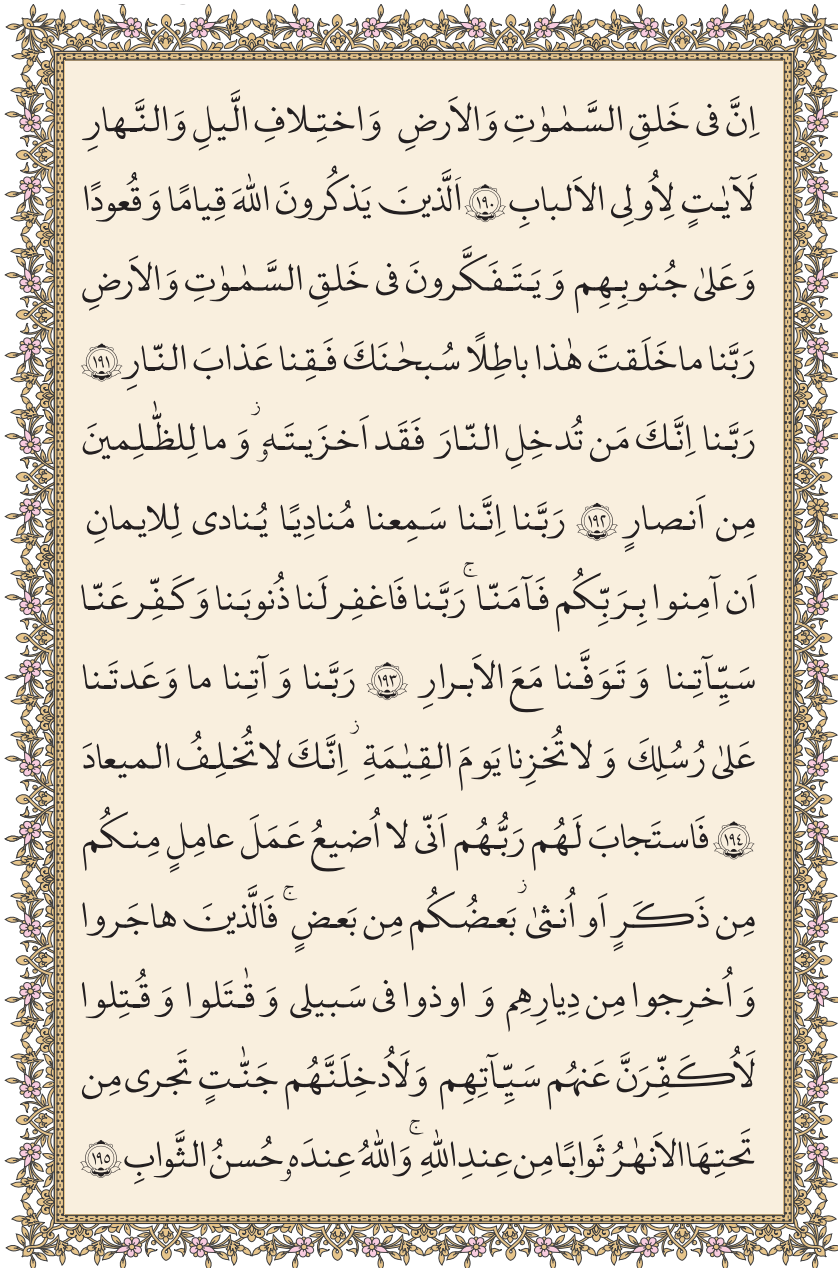 اِنَّ فى خَلقِ السَّمٰوٰتِ وَالاَرضِ وَاختِلافِ الَّيلِ وَالنَّهارِ
لَآيٰتٍ لِاُولِى الاَلبابِ ﴿١٩٠﴾ اَلَّذينَ يَذكُرونَ اللّٰهَ قِيامًا وَ قُعودًا
وَ عَلىٰ جُنوبِهِم وَ يَتَفَكَّرونَ فى خَلقِ السَّمٰوٰتِ وَالاَرضِ
رَبَّنا ما خَلَقتَ هٰذا باطِلًا سُبحٰنَكَ فَقِنا عَذابَ النّارِ ﴿١٩١﴾
رَبَّنا اِنَّكَ مَن تُدخِلِ النّارَ فَقَد اَخزَيتَهۥ ۖ وَ ما لِلظّٰلِمينَ
مِن اَنصارٍ ﴿١٩٢﴾ رَبَّنا اِنَّنا سَمِعنا مُنادِيًا يُنادى لِلايمانِ
اَن آمِنوا بِرَبِّكُم فَآمَنّا ۚ رَبَّنا فَاغفِر لَنا ذُنوبَنا وَ كَفِّر عَنّا
سَيِّـآتِنا وَ تَوَفَّنا مَعَ الاَبرارِ ﴿١٩٣﴾ رَبَّنا وَ آتِنا ما وَعَدتَنا
عَلىٰ رُسُلِكَ وَ لا تُخزِنا يَومَ القِيٰمَةِ ز اِنَّكَ لا تُخلِفُ الميعادَ
﴿١٩٤﴾ فَاستَجابَ لَهُم رَبُّهُم اَنّى لا اُضيعُ عَمَلَ عامِلٍ مِنكُم
مِن ذَكَرٍ اَو اُنثىٰ ز بَعضُكُم مِن بَعضٍ ۚ فَالَّذينَ هاجَروا
وَ اُخرِجوا مِن دِيارِهِم وَ اوذوا فى سَبيلى وَ قٰتَلوا وَ قُتِلوا
لَاُكَفِّرَنَّ عَنهُم سَيِّـآتِهِم وَلَاُدخِلَنَّهُم جَنّٰتٍ تَجرى مِن
تَحتِهَا الاَنهٰرُ ثَوابًا مِن عِندِ اللّٰهِ ۚ وَاللّٰهُ عِندَهۥ حُسنُ الثَّوابِ ﴿١٩٥﴾